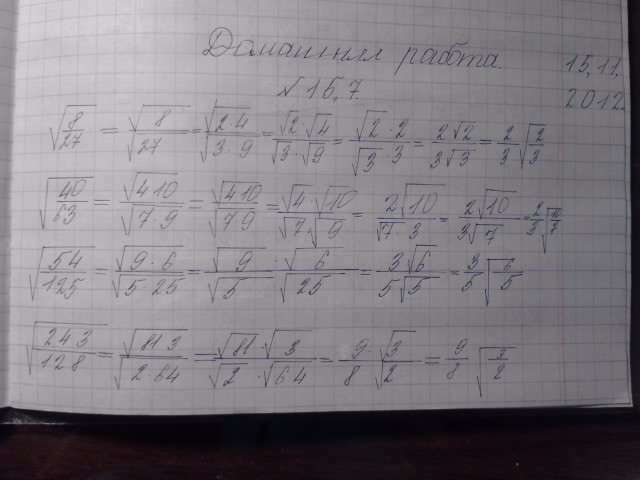 Домашняя работа. 15.11.
№ 16.7. 2012
√(8/27) = √8/√27 = √(2·4)/√(3·9) = √2·√4/√3·√9 = √2·2/√3·3 = 2√2/3√3 = 2/3 √(2/3)
√(40/63) = √(4·10)/√(7·9) = √(4 10)/√(7 9) = √4·√10/√7√9 = 2√10/√7 3 = 2√10/3√7 = 2/3 √(10/7)
√(54/125) = √(9·6)/√(5·25) = √9·√6/√5 √25 = 3√6/5√5 = 3/5 √(6/5)
√(243/128) = √(81 3)/√(2·64) = √81·√3/√2·√64 = 9·√3/8 √2 = 9/8 √(3/2)